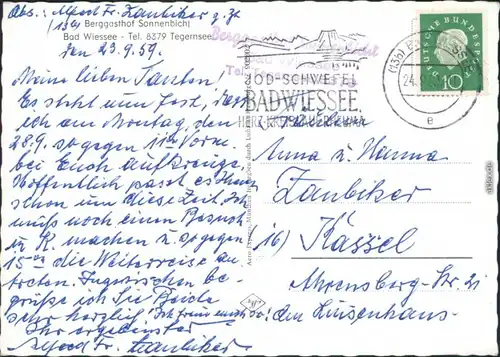 Abs.: Alfred Fr. Zaubiker z. Zt
(13b) Berggasthof Sonnenbichl
Bad Wiessee - Tel. 8379 Tegernsee
den 23.9.59.
Meine lieben Tanten!
Es steht nun fest, dass
ich am Montag, den
28.9. sogegen 11 Vorm.
bei Euch aufkreuze.
Hoffentlich passt es Ihnen
schon um diese Zeit. Ich
muß noch einen Besuch
in K. machen u. sogegen
15 die Weiterreise an-
treten. Inzwischen be-
grüße ich Sie Beide
sehr herzlich! Ich freue mich so:
Ihr ergebenster
Alfred Fr. Zaubiker
JOD-SCHWEFEL
BAD WIESSEE
HERZ KREISLAUF RHEUMA
(13b) B
24.9.
e
DEUTSCHE BUNDESPOST
10
Anna u. Hanna
Zaubiker
(16) Kassel
Ahrensberg-Str. 21
am Luisenhaus.